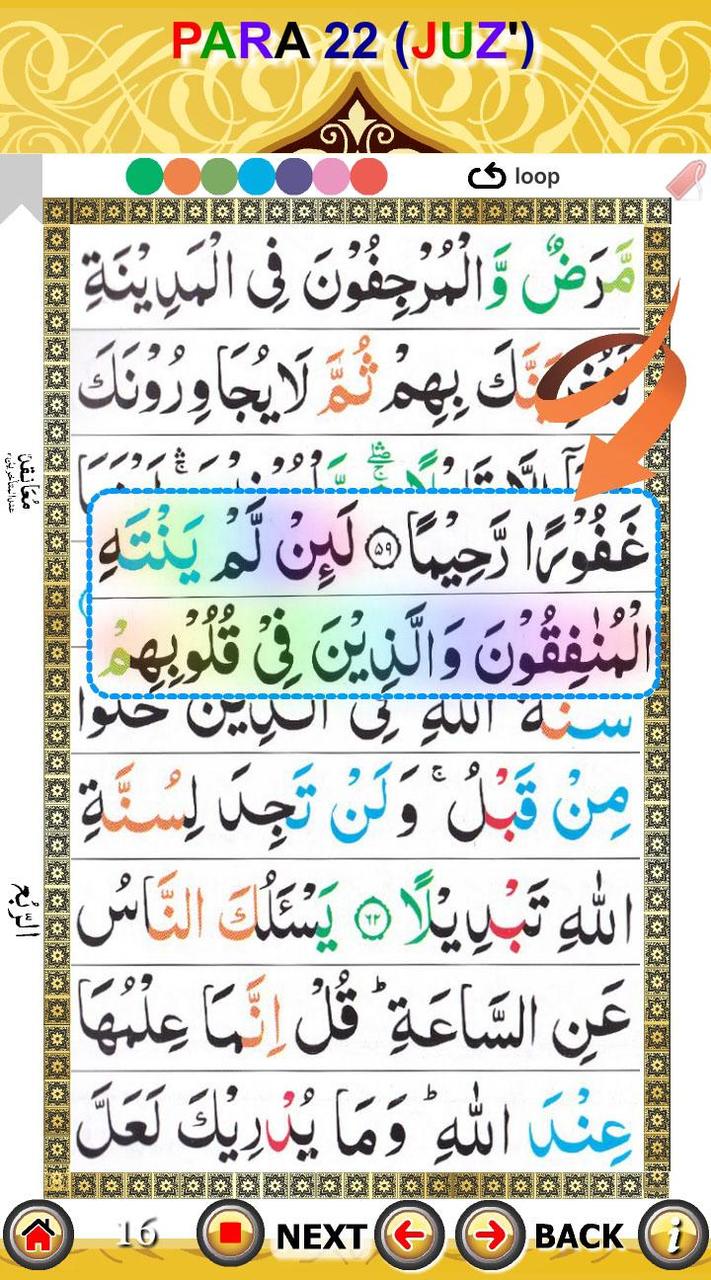 PARA 22 (JUZ')
loop
مَّرَضٌ وَّالْمُرْجِفُوْنَ فِی الْمَدِیْنَةِ
بِهِمْ ثُمَّ لَا یُجَاوِرُوْنَكَ
غَفُوْرًا رَّحِیْمًا ۝۵۹ لَىِٕنْ لَّمْ یَنْتَهِ
الْمُنٰفِقُوْنَ وَالَّذِیْنَ فِیْ قُلُوْبِهِمْ
سُنَّةَ اللّٰهِ فِی الَّذِیْنَ خَلَوْا
مِنْ قَبْلُ ۚ وَلَنْ تَجِدَ لِسُنَّةِ
اللّٰهِ تَبْدِیْلًا ۝۶۲ یَسْـَٔلُكَ النَّاسُ
عَنِ السَّاعَةِ ؕ قُلْ اِنَّمَا عِلْمُهَا
عِنْدَ اللّٰهِ ؕ وَمَا یُدْرِیْكَ لَعَلَّ
معانقة
الربع
16 NEXT BACK i